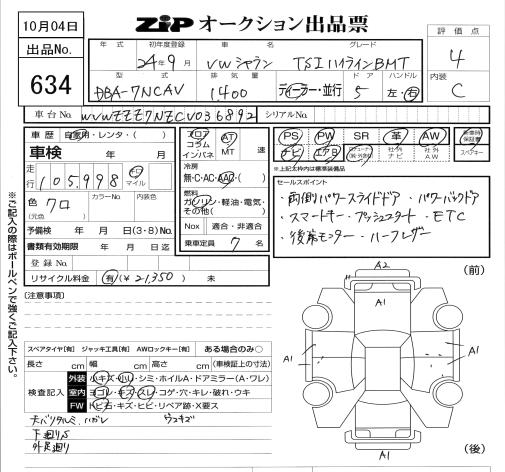 10月04日
ZiP オークション出品票
評価点
出品No.
634
年式 初年度登録 車名 グレード
24年9月 VWシャラン TSIハイラインBMT
4
型式 排気量 ドア ハンドル
DBA-7NCAV 1,400 ディーラー・並行 5 左・右
内装
C
車台No. WVWZZZ7NZCV036892 シリアルNo.
車歴 自家用・レンタ・( )
車検
走行 105,998 キロ マイル
色 クロ (元色) カラーNo. 内装色
予備検 年 月 日(3・8)No.
書類有効期限 年 月 日迄
登録No.
リサイクル料金 有(¥21,350) 未
フロア コラム インパネ AT MT 速
冷房
無・C・AC・AAC・( )
燃料
ガソリン・軽油・電気・その他( )
Nox 適合・非適合
乗車定員 7 名
PS PW SR 革 AW 新車時保証書
ナビ エアB 社外ナビ 社外AW スペアキー
※上記太枠内は標準装備品
セールスポイント
・両側パワースライドドア ・パワーバックドア
・スマートキー・プッシュスタート・ETC
・後席モニター・ハーフレザー
※ご記入の際はボールペンで強くご記入下さい。
[注意事項]
スペアタイヤ[有] ジャッキ工具[有] AWロックキー[有] ある場合のみ○
長さ cm 幅 cm 高さ cm (車検証上の寸法)
検査記入
外装 小キズ・小凹・シミ・ホイルA・ドアミラー(A・ワレ)
室内 ヨゴレ・キズ・スレ・コゲ・穴・キレ・破れ・ウキ
FW トビ石・キズ・ヒビ・リペア跡・X要ス
下廻りS
外足廻り
(前)
A2
A1
A1
A1
A1
(後)